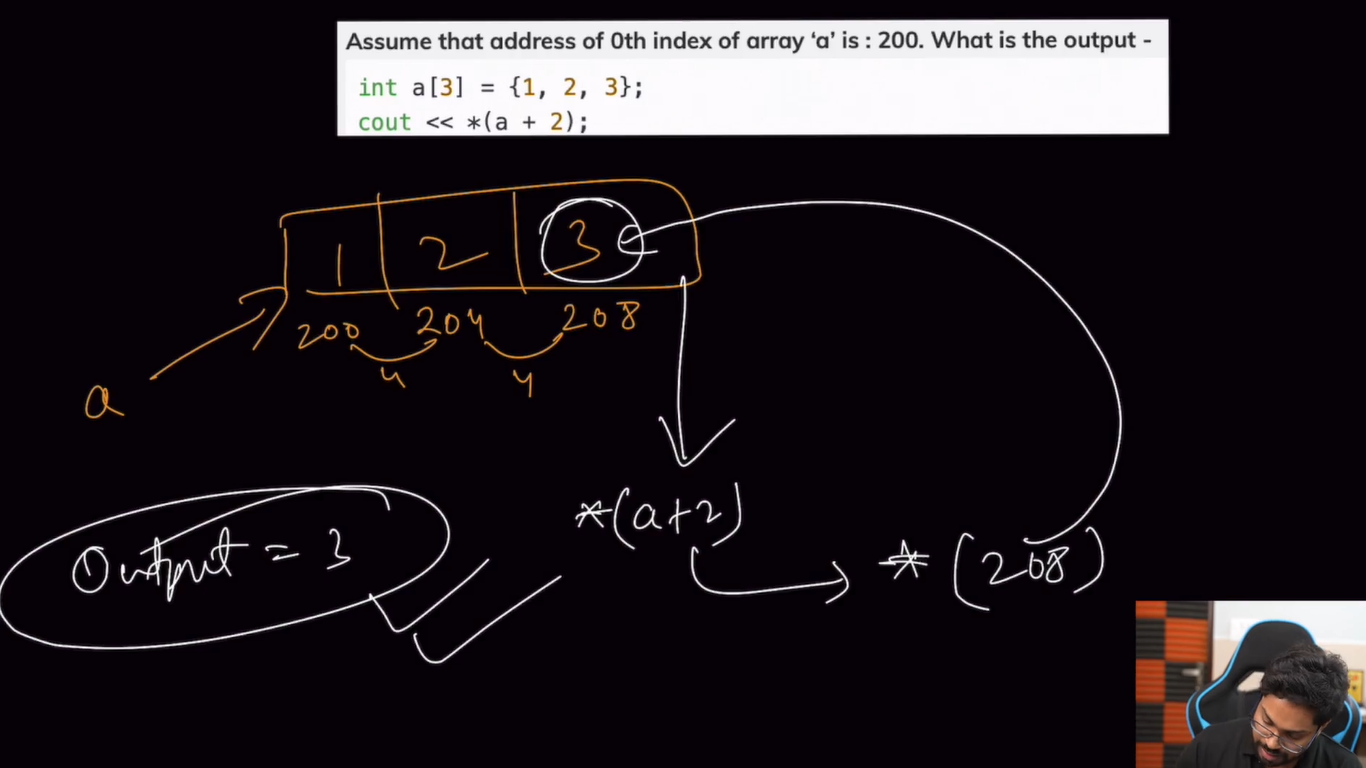 Assume that address of 0th index of array ‘a’ is : 200. What is the output -
int a[3] = {1, 2, 3};
cout << *(a + 2);
1 2 3
200 204 208
4 4
a
*(a+2)
Output = 3
* (208)